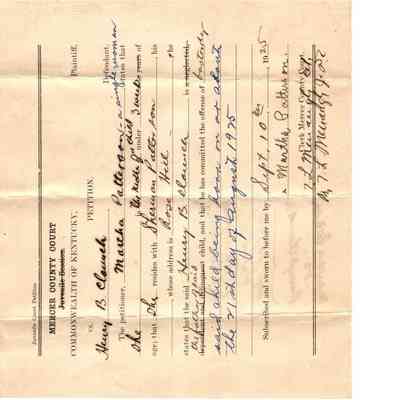 Juvenile Court Petition
MERCER COUNTY COURT
Juvenile Session
COMMONWEALTH OF KENTUCKY, Plaintiff,
vs. PETITION
Henry B Claunch Defendant.
The petitioner, Martha Patterson, a single woman states that
She is the mother of under 3 weeks of
age; that She resides with Sherman Patterson, his
whose address is Rose Hill - She
states that the said Henry B Claunch is a neglected,
child, and that he has committed the offense of bastardy
said child being born on or about
the 21st day of August 1925
Subscribed and sworn to before me by Sept. 10th, 1925
Martha Patterson.
Clerk Mercer County
By T L D.C.